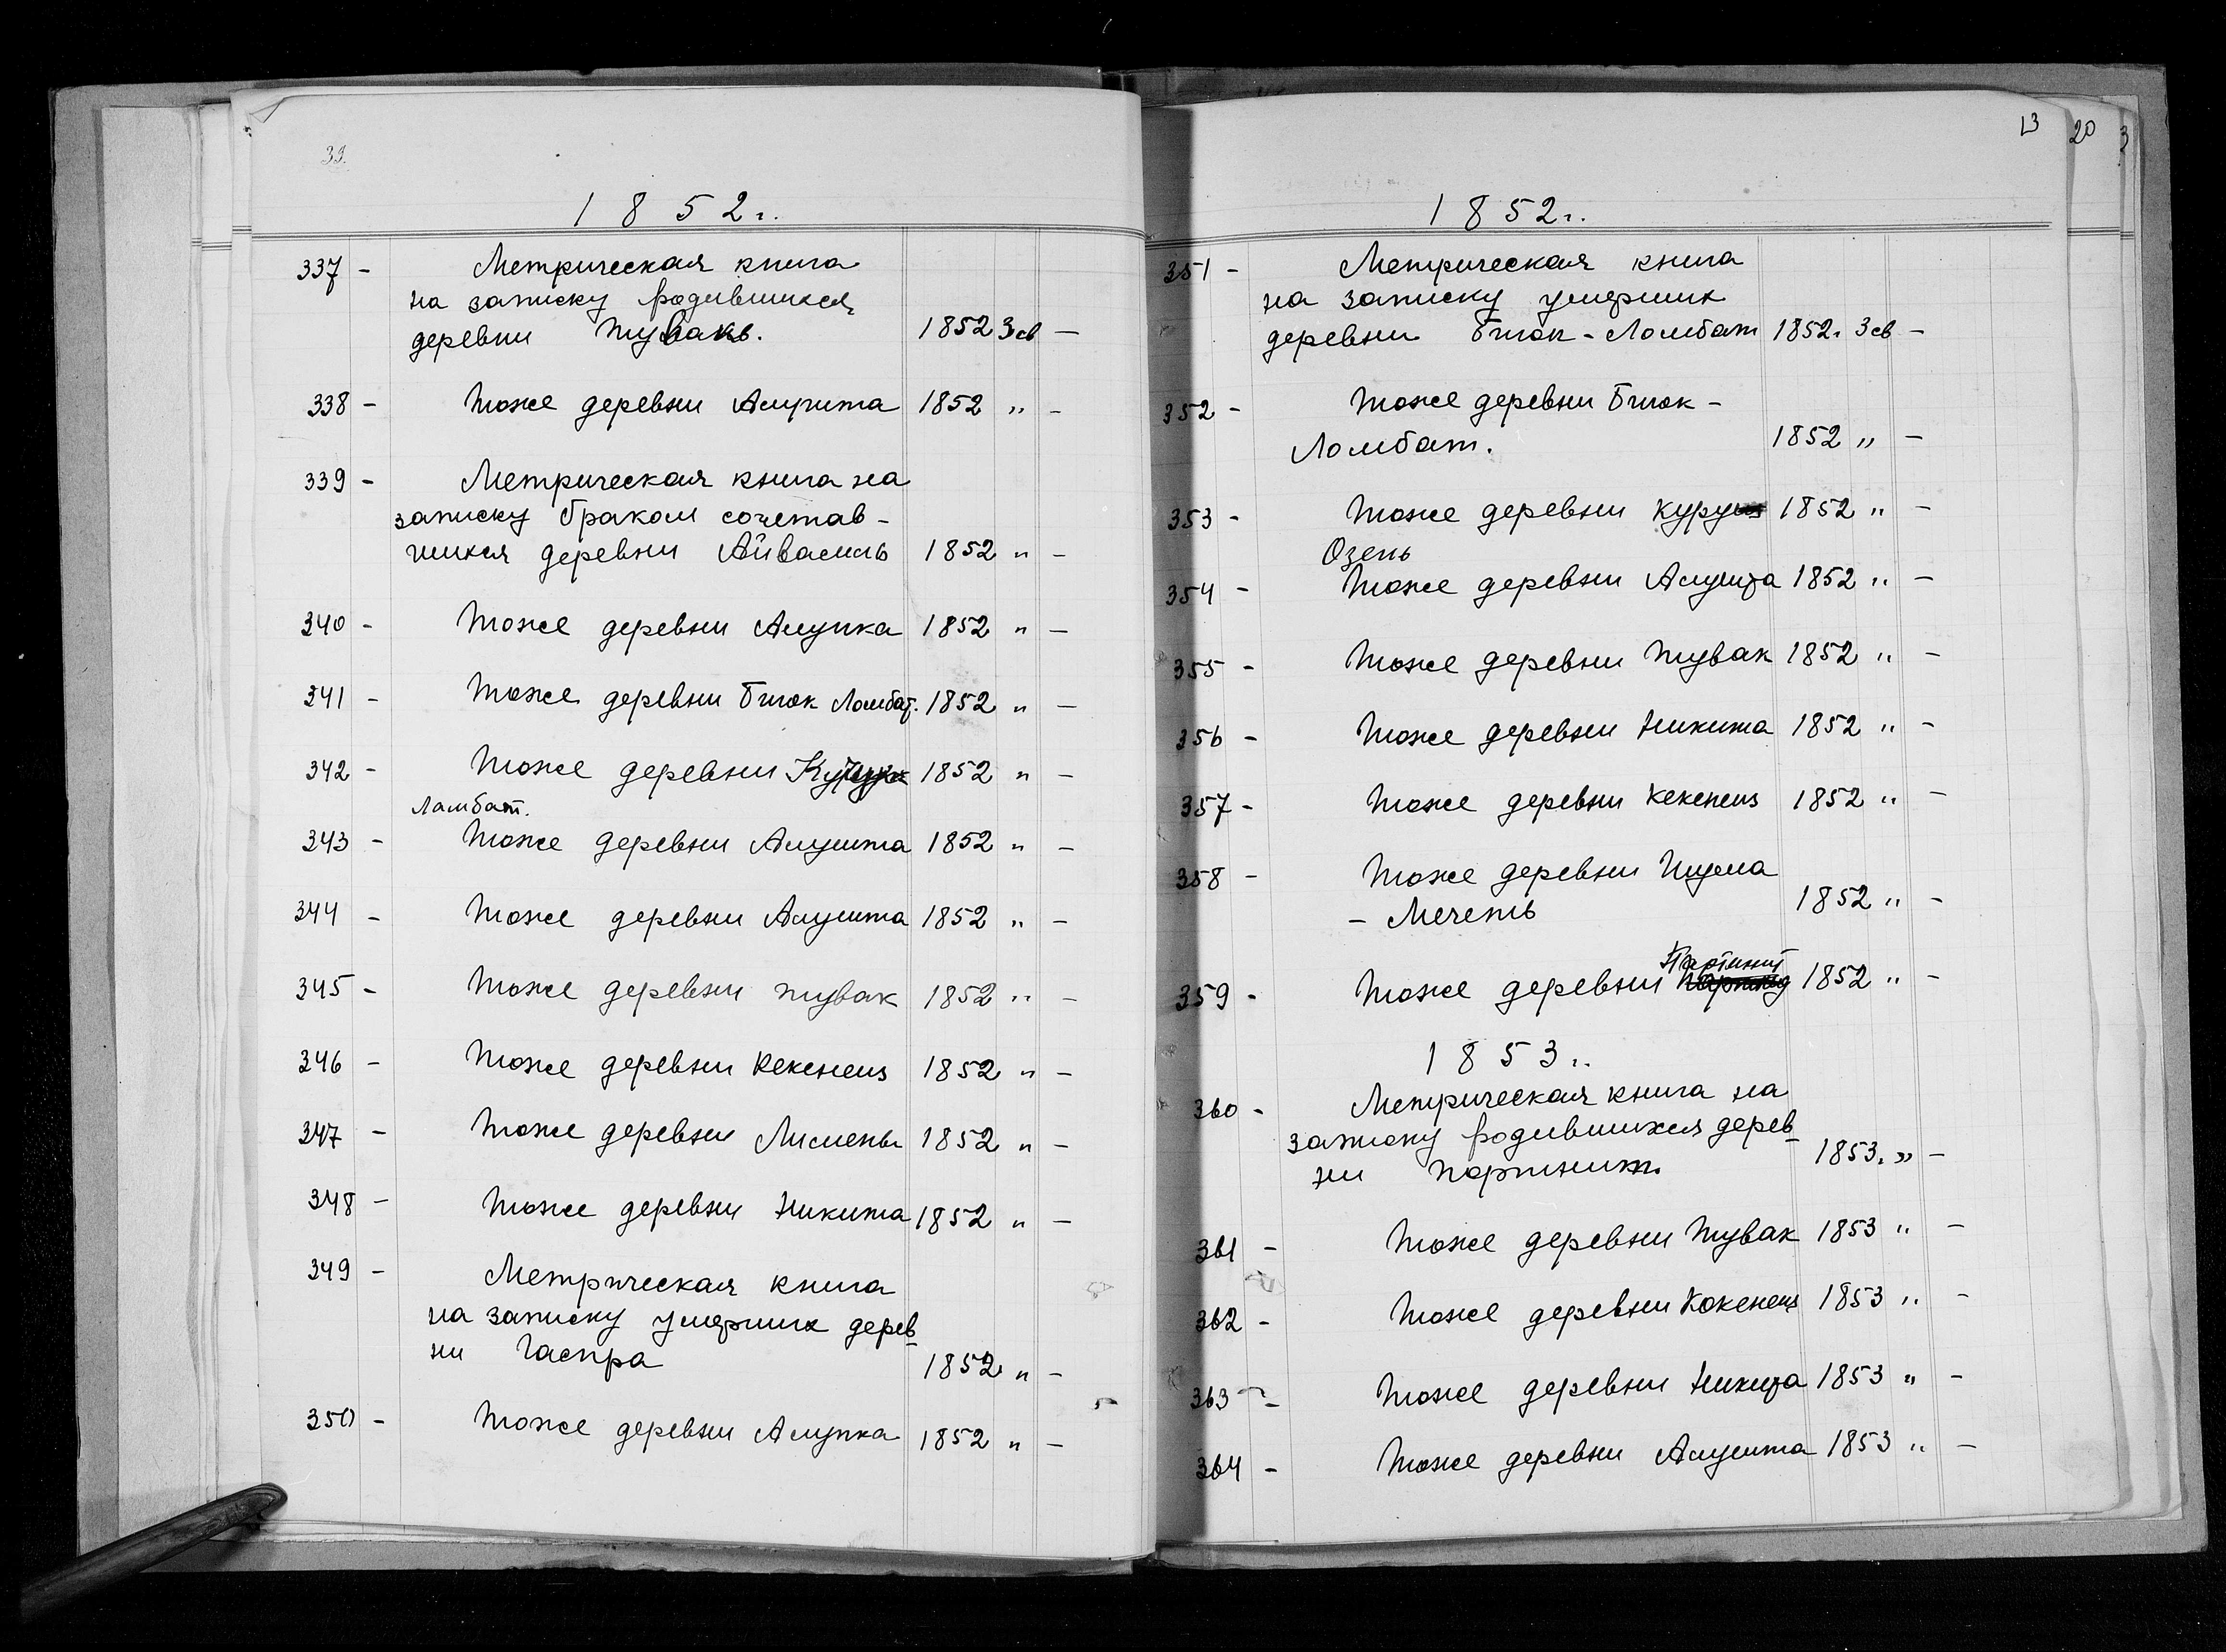 33.
1852 г.
337 - Метрическая книга
на записку родившихся
деревни Тувакъ. 1852 Зсв —
338 - Тоже деревни Алушта 1852 " -
339 - Метрическая книга на
записку браком сочетав-
шихся деревни Айвасиль 1852 " -
340 - Тоже деревни Алупка 1852 " —
341 - Тоже деревни Биюк Ломбат. 1852 " —
342 - Тоже деревни Кучук 1852 " —
Ламбат.
343 - Тоже деревни Алушта 1852 " —
344 - Тоже деревни Алушта 1852 " —
345 - Тоже деревни Тувак 1852 " —
346 - Тоже деревни Кекенеиз 1852 " —
347 - Тоже деревни Лимены 1852 " —
348 - Тоже деревни Никита 1852 " —
349 - Метрическая книга
на записку умерших дерев-
ни Гаспра 1852 " —
350 - Тоже деревни Алупка 1852 " —
13 20 3
1852 г.
351 - Метрическая книга
на записку умерших
деревни Биюк - Ломбат 1852. Зсв —
352 - Тоже деревни Биюк -
Ломбат. 1852 " —
353 - Тоже деревни Куру 1852 " —
Озень
354 - Тоже деревни Алушта 1852 " —
355 - Тоже деревни Тувак 1852 " —
356 - Тоже деревни Никита 1852 " —
357 - Тоже деревни Кекенеиз 1852 " —
358 - Тоже деревни
- Мечеть 1852 " -
Партинит
359 - Тоже деревни 1852 " -
1853 г.
360 - Метрическая книга на
записку родившихся дерев-
ни Портинит. 1853. " —
361 - Тоже деревни Тувак 1853 " —
362 - Тоже деревни Кокенеиз 1853 " -
363 - Тоже деревни Никита 1853 " -
364 - Тоже деревни Алушта 1853 " —